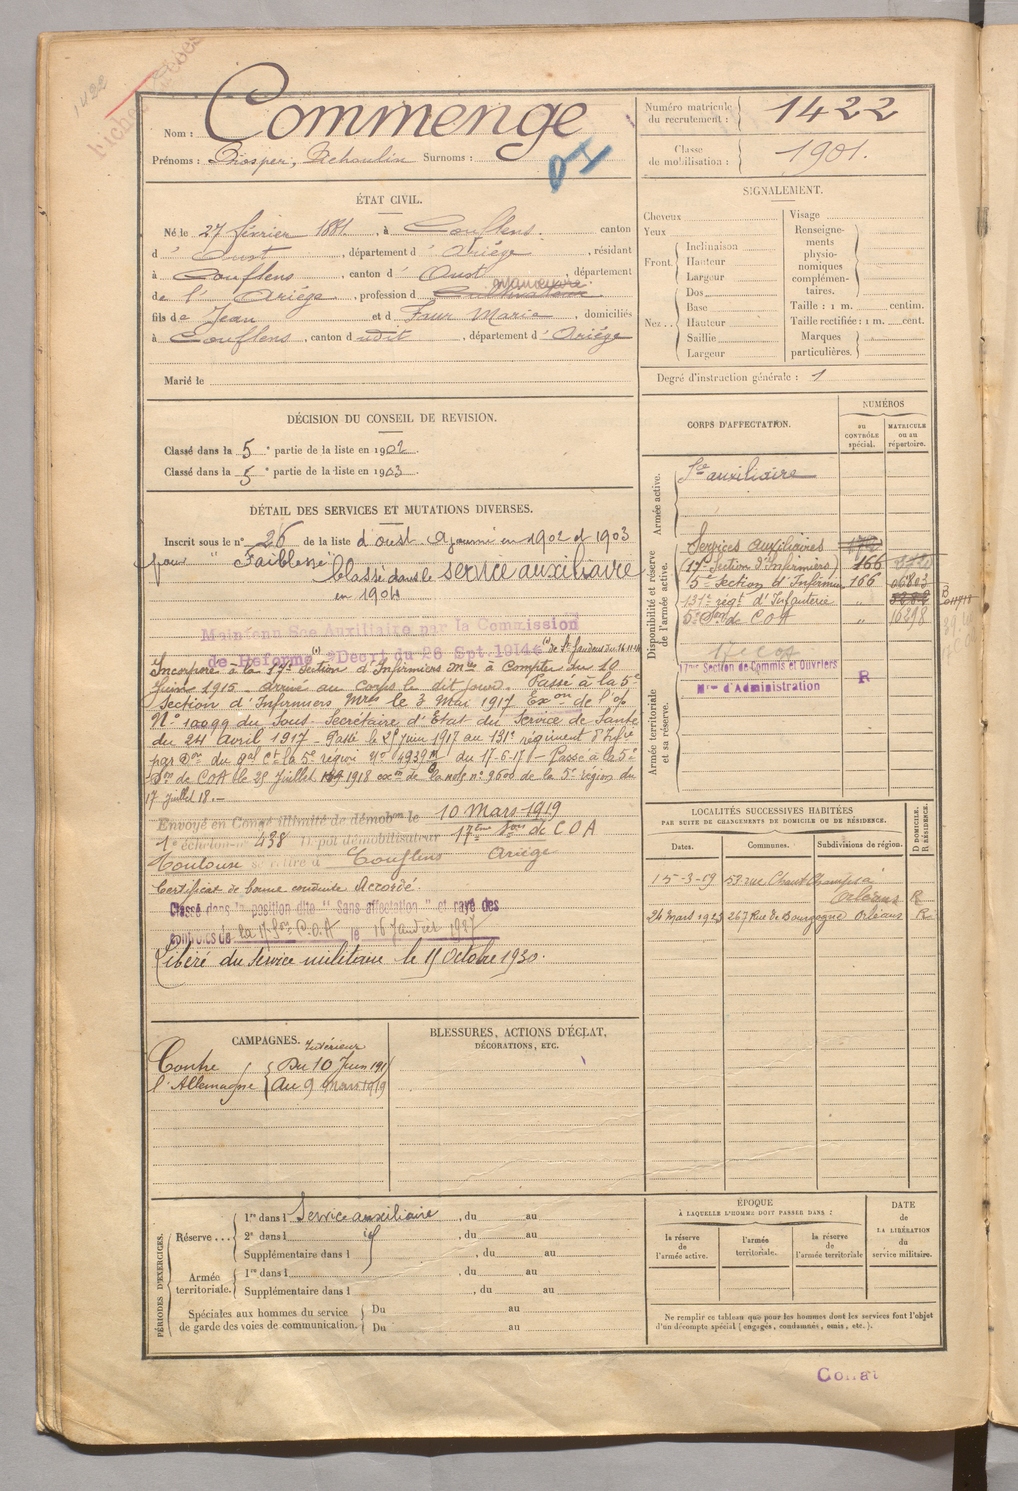 1422
Nom : Commenge
Prénoms : Prosper, Surnoms :
Numéro matricule du recrutement : 1422
Classe de mobilisation : 1901.
ÉTAT CIVIL.
Né le 27 février 1881, à Couflens. canton
d' Oust, département d' Ariége, résidant
à Couflens, canton d' Oust, département
de l' Ariége, profession d
fils de Jean et d Faur Marie, domiciliés
à Couflens, canton dudit, département d' Ariége
Marié le
SIGNALEMENT.
Cheveux
Yeux
Front. Inclinaison
Hauteur
Largeur
Dos
Nez... Base
Hauteur
Saillie
Largeur
Visage
Renseigne-
ments
physio-
nomiques
complémen-
taires.
Taille : 1 m. centim.
Taille rectifiée : 1 m. cent.
Marques
particulières.
Degré d'instruction générale : 1
DÉCISION DU CONSEIL DE REVISION.
Classé dans la 5e partie de la liste en 1902
Classé dans la 5e partie de la liste en 1903
DÉTAIL DES SERVICES ET MUTATIONS DIVERSES.
Inscrit sous le n° 26 de la liste d'oust. Ajourné en 1902 et 1903
pour "Faiblesse"
Classé dans le service auxiliaire
en 1904
Maintenu Sce Auxiliaire par la Commission
de Réforme (1) Décret du 26 Sept. 1914
Incorporé à la 17e Section d'Infirmiers Mres à Compter du 10
Juin 1915. Arrivé au corps le dit jour. Passé à la 5e
Section d'Infirmiers Mres le 3 Mai 1917
N° 10099 du Sous-Secrétaire d'Etat du Service de Santé
du 24 Avril 1917 - Passé le 25 juin 1917 au 131e régiment d'Infrie
du 17-6-17 - Passé à la 5e
Son de COA le 25 Juillet 1918 de la note n° 9600 de la 5e région du
17 juillet 18.-
Envoyé en Congé illimité de démobon le 10 Mars 1919
1e échelon n° 438 Dépôt démobilisateur 17ème Son de COA
Toulouse se retire à Couflens Ariége
Certificat de bonne conduite Accordé.
Classé dans la position dite "Sans affectation" et rayé des
contrôles de la 17e Son C.O.A le 16 Janvier 1927
Libéré du service militaire le 15 Octobre 1930.
CORPS D'AFFECTATION.
NUMÉROS
AU CONTRÔLE spécial.
MATRICULE ou au répertoire.
Armée active.
Sce auxiliaire
Disponibilité et réserve de l'armée active.
Services auxiliaires
(17e Section d'Infirmiers) 166
5e Section d'Infirmiers 166 06803
131e régt d'Infanterie "
5e Son de COA " 16398
Armée territoriale et sa réserve.
17me Section de Commis et Ouvriers
Mres d'Administration R
LOCALITÉS SUCCESSIVES HABITÉES
PAR SUITE DE CHANGEMENTS DE DOMICILE OU DE RÉSIDENCE.
Dates. Communes. Subdivisions de région. D DOMICILE. R RÉSIDENCE.
15-3-19 59 rue Chant Orléans R
24 Mars 1923 267 Rue de Bourgogne Orléans R
CAMPAGNES.
Intérieur
Contre Du 10 Juin 191
l'Allemagne Au 9 Mars 1919
BLESSURES, ACTIONS D'ÉCLAT,
DÉCORATIONS, ETC.
PÉRIODES D'EXERCICES.
Réserve... 1re dans l Service auxiliaire, du au
2e dans l id, du au
Supplémentaire dans l , du au
Armée territoriale. 1re dans l , du au
Supplémentaire dans l , du au
Spéciales aux hommes du service
de garde des voies de communication. Du au
Du au
ÉPOQUE
À LAQUELLE L'HOMME DOIT PASSER DANS :
la réserve de l'armée active.
l'armée territoriale.
la réserve de l'armée territoriale
DATE de LA LIBÉRATION du service militaire.
Ne remplir ce tableau que pour les hommes dont les services font l'objet
d'un décompte spécial (engagés, condamnés, omis, etc.).